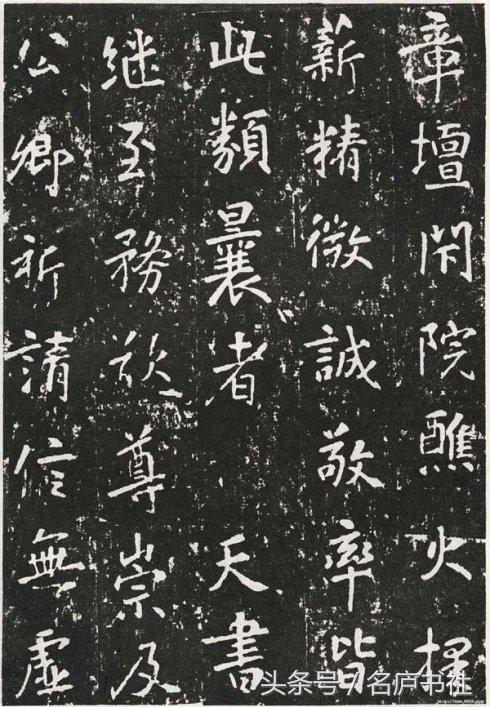 章壇閑院醮火擇
薪精微誠敬率皆
此類曩者天書
継至務欲尊崇及
公卿祈請信無虛
头条号 / 名庐书社